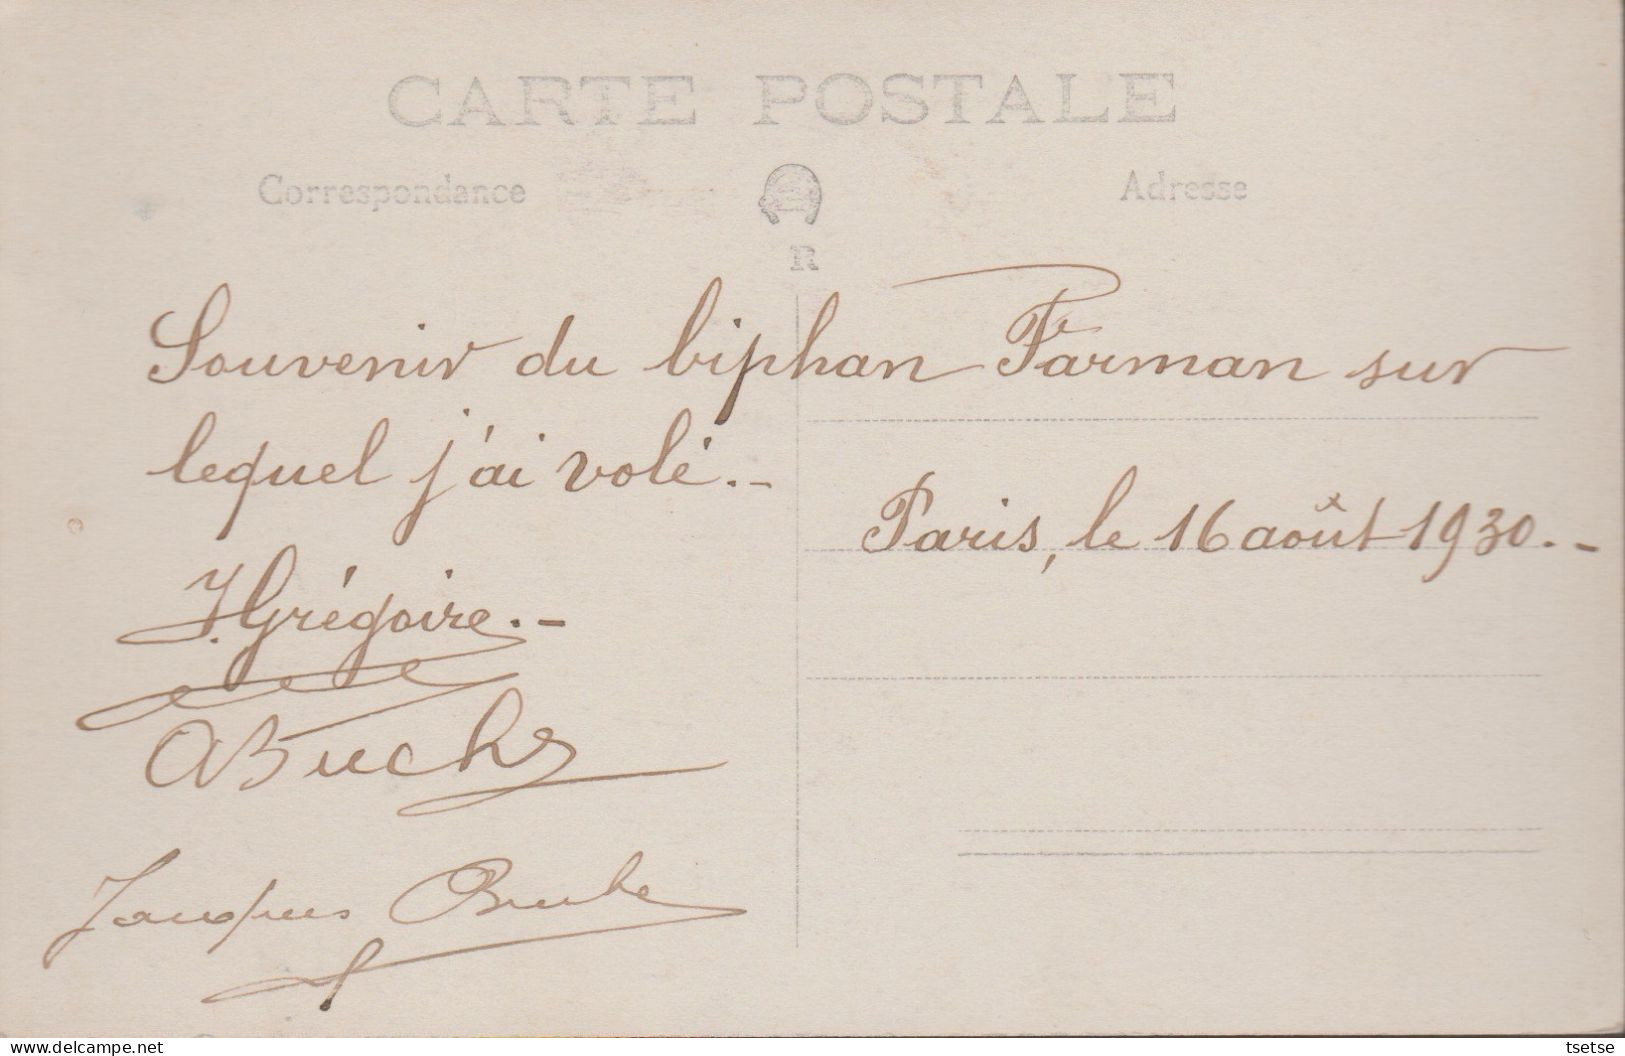 CARTE POSTALE
Correspondance
Adresse
R
Souvenir du biphan Farman sur
lequel j'ai volé.-
Paris, le 16 août 1930.-
J. Grégoire.-
ABuchs
Jacques
www.delcampe.net
tsetse